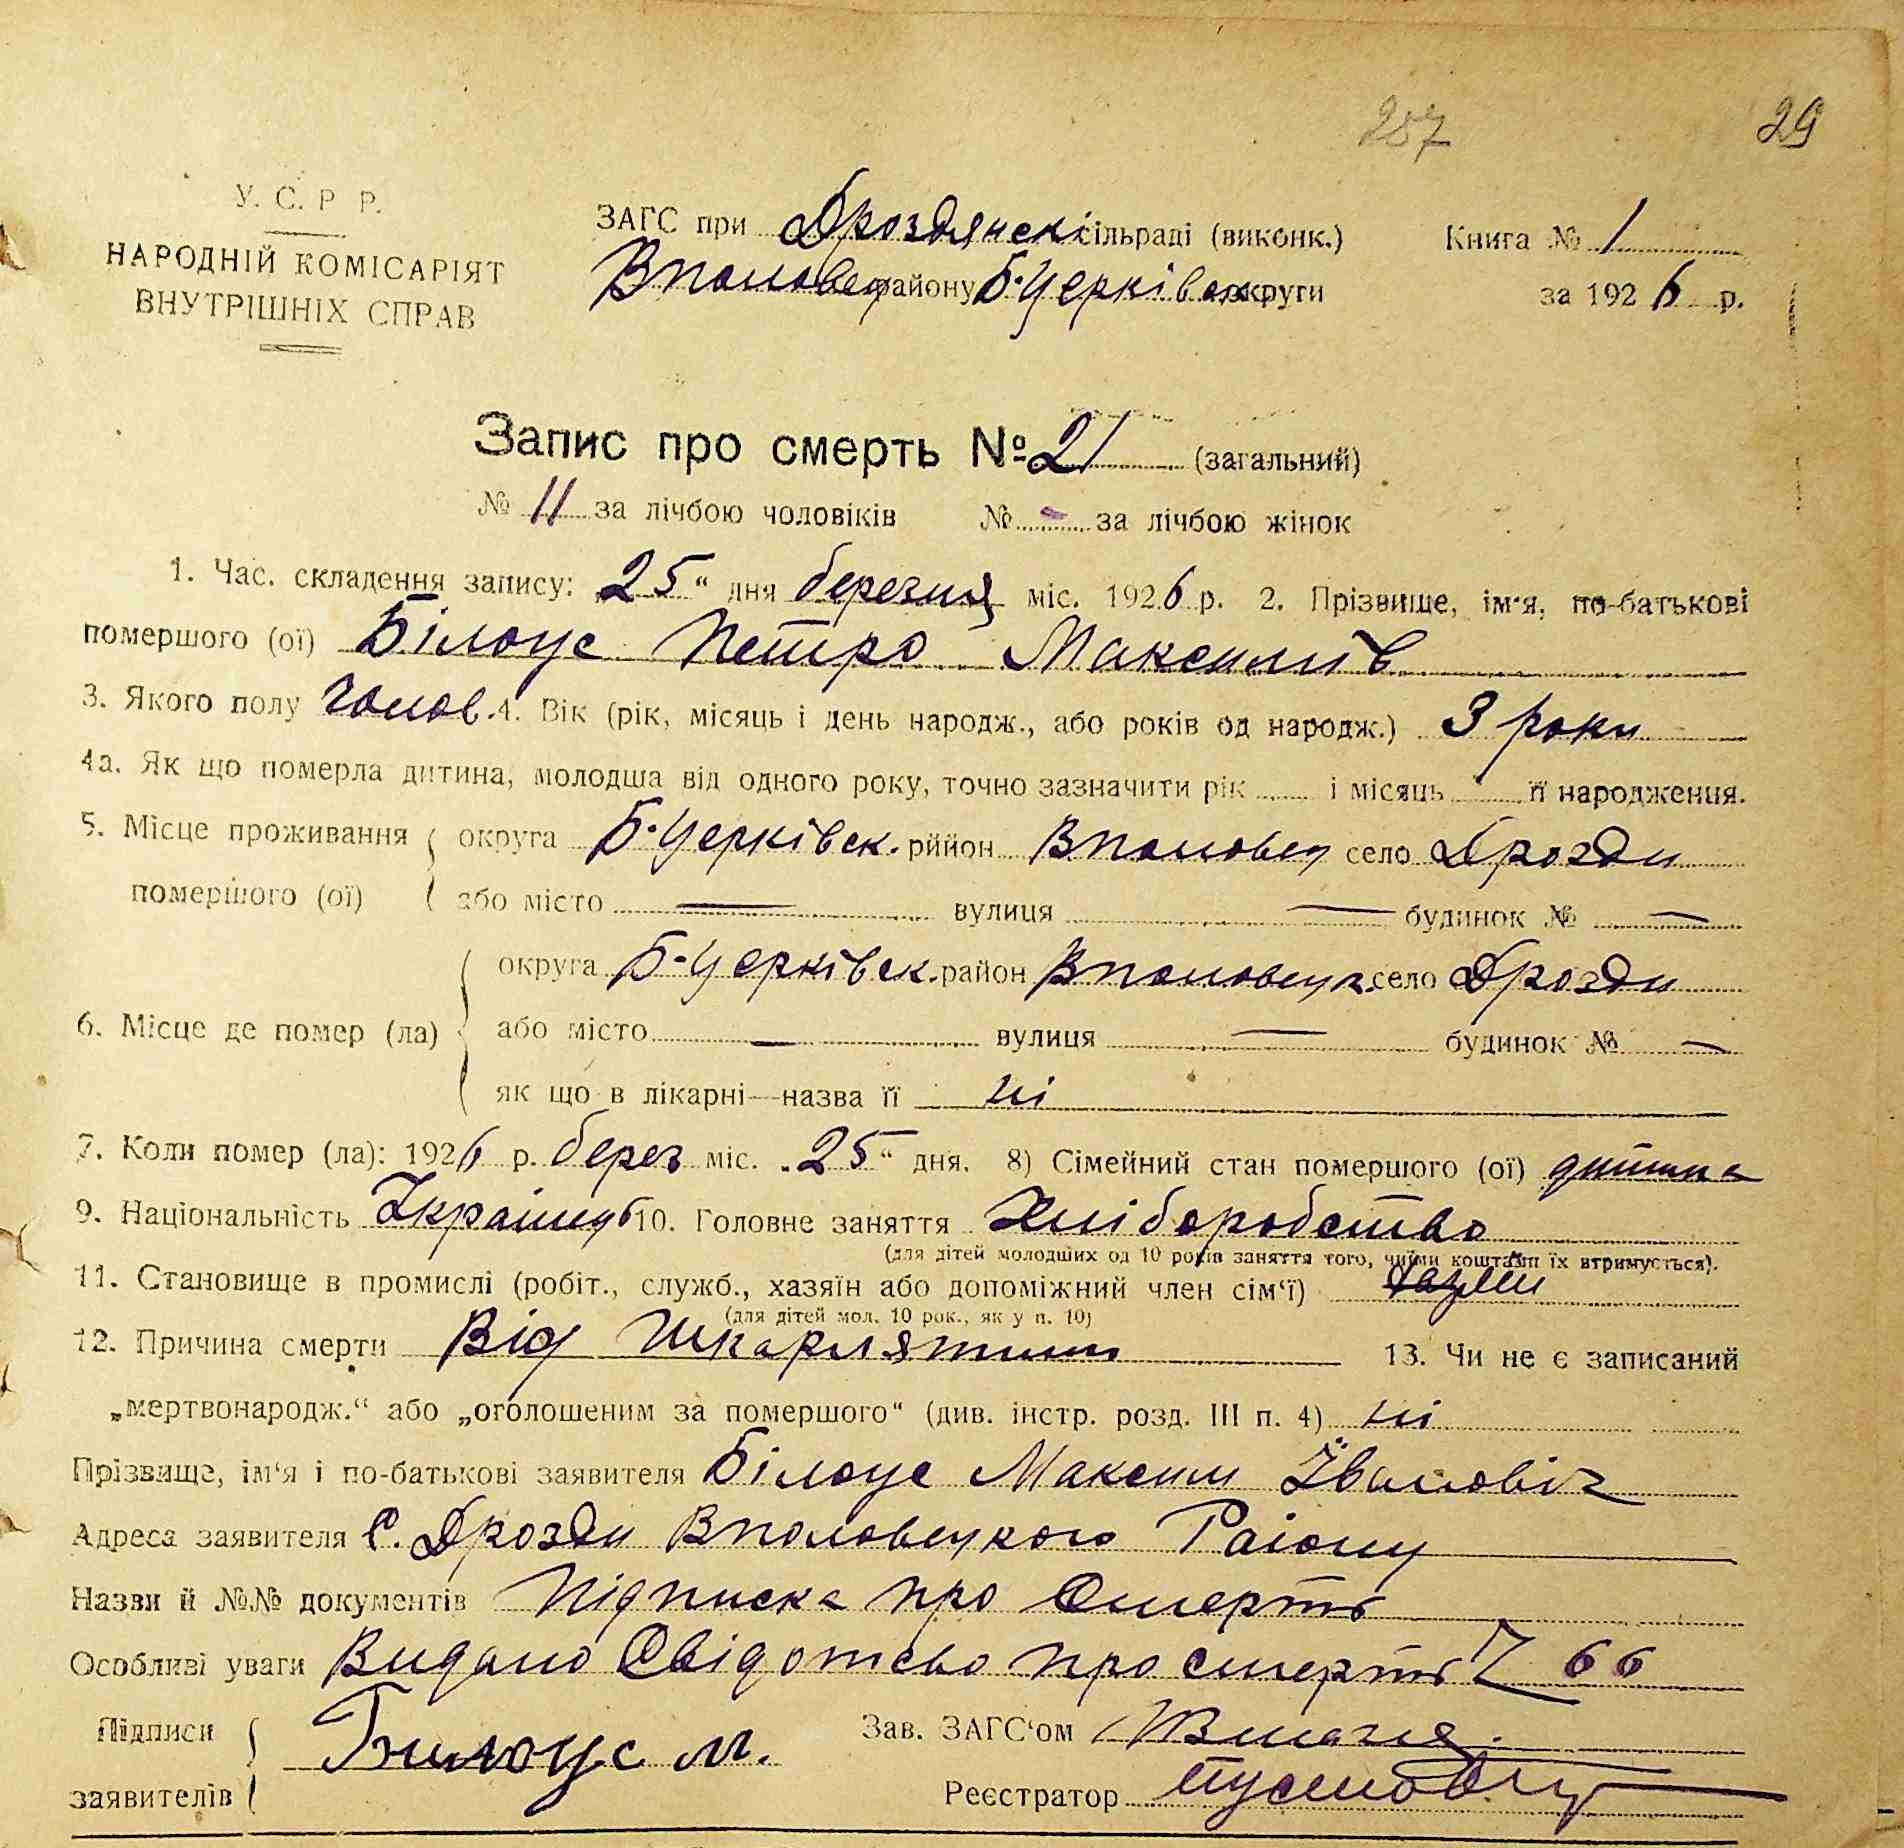 287 29
У. С. Р Р.
НАРОДНІЙ КОМІСАРІЯТ
ВНУТРІШНІХ СПРАВ
ЗАГС при Дроздянскі сільраді (виконк.) Книга № 1
Вполовец району Б-Церківськ округи за 1926 р.
Запис про смерть № 21 (загальний)
№ 11 за лічбою чоловіків № - за лічбою жінок
1. Час. складення запису: 25 " дня березня міс. 1926 р. 2. Прізвище, ім'я, по-батькові
помершого (ої) Білоус Петро Максимів
3. Якого полу чолов. 4. Вік (рік, місяць і день народж., або років од народж.) 3 роки
4а. Як що померла дитина, молодша від одного року, точно зазначити рік і місяць її народження.
5. Місце проживання помершого (ої) округа Б-Церківск. рййон Вполовец село Дрозди
або місто — вулиця — будинок № —
6. Місце де помер (ла) округа Б-Церківск. район Вполовецк. село Дрозди
або місто — вулиця — будинок № —
як що в лікарні—назва її ні
7. Коли помер (ла): 1926 р. берез міс. „25" дня. 8) Сімейний стан помершого (ої) дитина
9. Національність Україн 10. Головне заняття Хліборобство
(для дітей молодших од 10 років заняття того, чиїми коштами їх втримується).
11. Становище в промислі (робіт., служб., хазяїн або допоміжний член сім'ї)
(для дітей мол. 10 рок., як у п. 10)
12. Причина смерти Від Шкарлятини 13. Чи не є записаний
„мертвонародж." або „оголошеним за помершого" (див. інстр. розд. III п. 4) ні
Прізвище, ім'я і по-батькові заявителя Білоус Максим Івановіч
Адреса заявителя С. Дрозди Вполовецкого Раіону
Назви й №№ документів Підписка про Смерть
Особливі уваги Видано Свідотсво про смерть № 66
Підписи заявителів Билоус м. Зав. ЗАГС'ом
Реєстратор